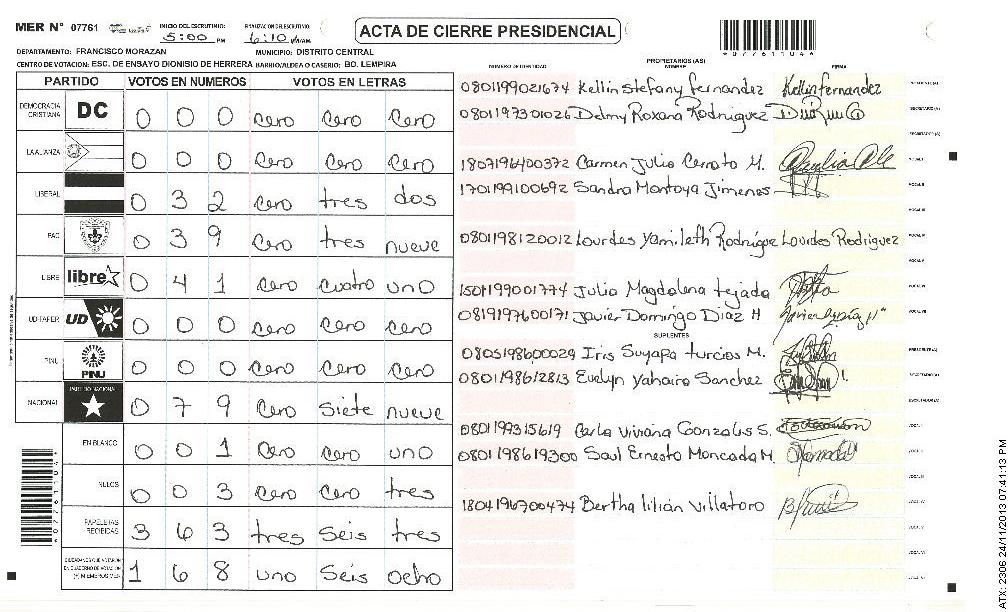 MER N° 07761 INICIO DEL ESCRUTINIO: 5:00 PM FINALIZACION ESCRUTINIO: 6:10 ACTA DE CIERRE PRESIDENCIAL
*077611044*
DEPARTAMENTO: FRANCISCO MORAZAN MUNICIPIO: DISTRITO CENTRAL
CENTRO DE VOTACION: ESC. DE ENSAYO DIONISIO DE HERRERA (BARRIO/ALDEA O CASERIO): BO. LEMPIRA
PARTIDO VOTOS EN NUMEROS VOTOS EN LETRAS
DEMOCRACIA CRISTIANA DC 0 0 0 cero cero cero
LA ALIANZA 0 0 0 cero cero cero
LIBERAL 0 3 2 cero tres dos
PAC 0 3 9 cero tres nueve
LIBRE libre 0 4 1 cero cuatro uno
UD-FAPER UD 0 0 0 cero cero cero
PINU PINU 0 0 0 cero cero cero
NACIONAL PARTIDO NACIONAL 0 7 9 cero siete nueve
EN BLANCO 0 0 1 cero cero uno
NULOS 0 0 3 cero cero tres
PAPELETAS RECIBIDAS 3 6 3 tres seis tres
CIUDADANOS QUE VOTARON EN CUADERNO DE VOTACION (+) MIEMBROS MER 1 6 8 uno seis ocho
NUMERO DE IDENTIDAD PROPIETARIOS (AS) NOMBRE FIRMA
0801199021674 Kellin Stefany fernandez Kellin fernandez PRESIDENTE(A)
0801197301026 Delmy Roxana Rodriguez SECRETARIO(A)
ESCRUTADOR(A)
1807196400372 Carmen Julia Cerrato M. VOCAL I
170199100692 Sandra Montoya Jimenes VOCAL II
VOCAL III
0801198120012 Lourdes Yamileth Rodrigue Lourdes Rodriguez VOCAL IV
VOCAL V
1501199001774 Julia Magdalena tejada VOCAL VI
0819197600171 Javier Domingo Diaz H VOCAL VII
SUPLENTES
0805198600029 Iris Suyapa turcios M. PRESIDENTE(A)
0801198612813 Evelyn Yahaira Sanchez SECRETARIO(A)
ESCRUTADOR(A)
0801199315619 Carla Viviana Gonzales S. VOCAL I
0801198619300 Saul Ernesto Moncada M. VOCAL II
1804196700474 Bertha lilian Villatoro VOCAL IV
VOCAL V
VOCAL VI
*077611044*
ATX: 2306 24/11/2013 07:41:13 PM